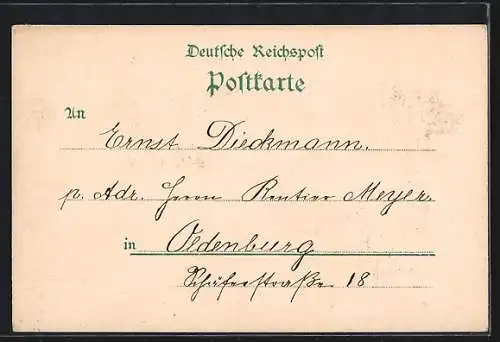 Deutsche Reichspost
Postkarte
An
Ernst Dieckmann.
p. Adr. Herrn Rentier Meyer.
in Oldenburg
Schäferstraße 18